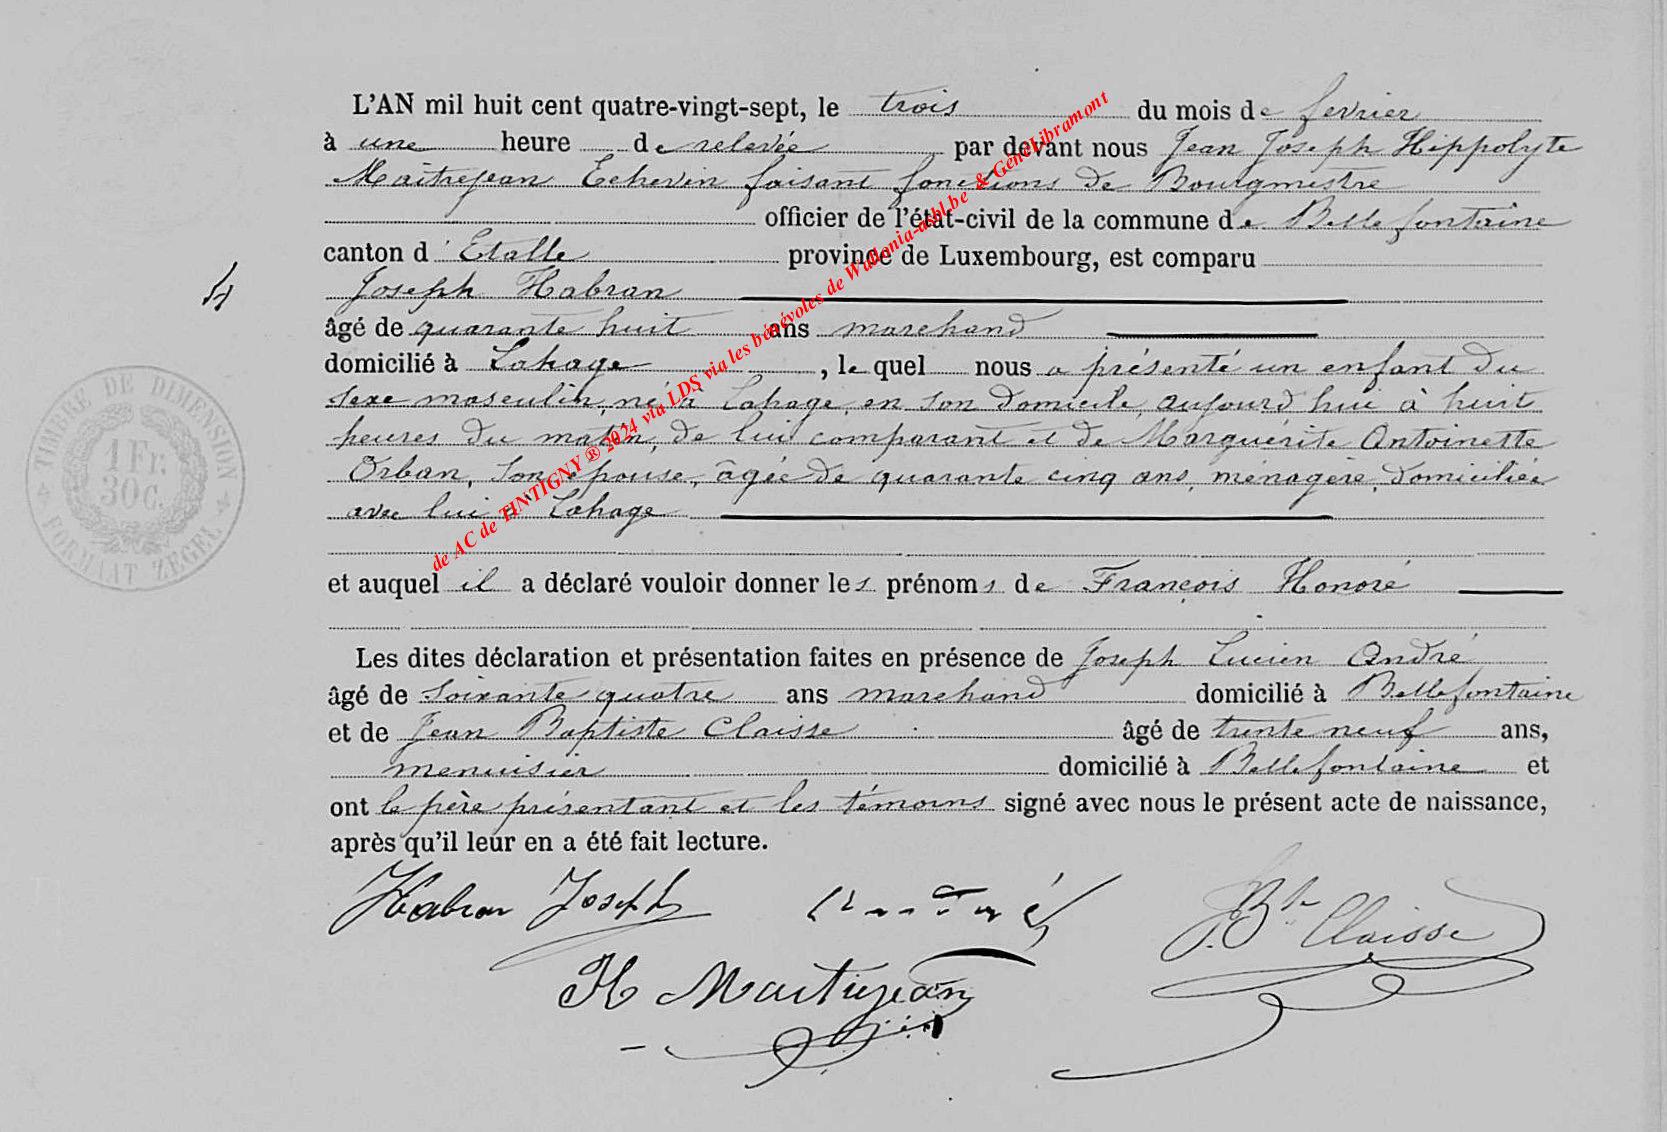 L'AN mil huit cent quatre-vingt-sept, le trois du mois de fevrier
à une heure de relevée par devant nous Jean Joseph Hippolyte
Maitrejean Echevin faisant fonctions de Bourgmestre
officier de l'état-civil de la commune de Bellefontaine
canton d'Etalle province de Luxembourg, est comparu
Joseph Habran
4
âgé de quarante huit ans marchand
domicilié à Lahage, le quel nous a présenté un enfant du
sexe masculin, né à Lahage, en son domicile, aujourd'hui à huit
heures du matin, de lui comparant et de Marguérite Antoinette
Orban, son épouse, âgée de quarante cinq ans, ménagère, domiciliée
avec lui à Lahage
et auquel il a déclaré vouloir donner les prénoms de François Honoré
Les dites déclaration et présentation faites en présence de Joseph Lucien André
âgé de soixante quatre ans marchand domicilié à Bellefontaine
et de Jean Baptiste Claisse âgé de trente neuf ans,
menuisier domicilié à Bellefontaine et
ont le père présentant et les témoins signé avec nous le présent acte de naissance,
après qu'il leur en a été fait lecture.
Habran Joseph
J. Bte Claisse
H Maitrejean
TIMBRE DE DIMENSION
1 Fr.
30 c.
FORMAAT ZEGEL
de AC de TINTIGNY ® 2024 via LDS via les bénévoles de Wallonia-asbl.be & GeneLibramont